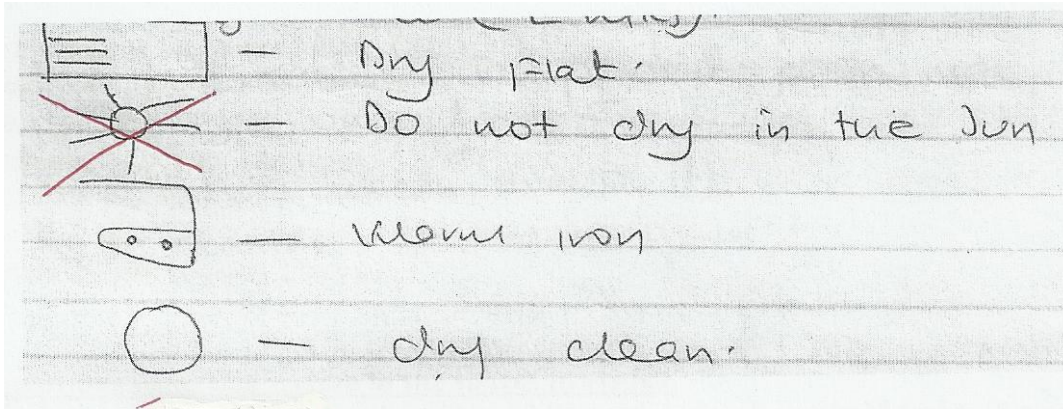 — Dry Flat.
— Do not dry in the Sun
— Warm iron
— dry clean.